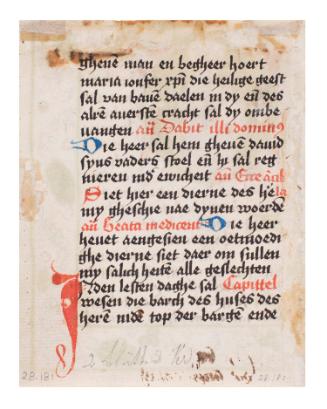 gheue man en begheer hoert
maria ionfer xpi die heilige geest
sal van bauē daelen in dy eñ des
alre auerste cracht sal dy ombe
uangen añ Dabit illi dominꝰ
Die heer sal hem gheuē dauid
syns vaders stoel eñ hi sal reg
nieren ind ewicheit añ Ecce ācil
Siet hier een dierne des he
my gheschie nae dynen woerde
añ Beata me dicent Die heer
heuet aengesien een oetmoedi
ghe dierne siet daer om sullen
my salich heitē alle geslechten
In den lesten daghe sal Capittel
wesen die barch des huses des
herē inde top der bargē ende
28.181